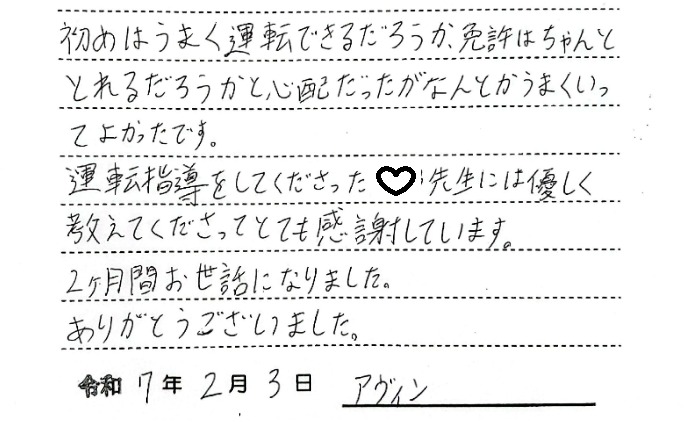 初めはうまく運転できるだろうか、免許はちゃんと
とれるだろうかと心配だったがなんとかうまくいっ
てよかったです。
運転指導をしてくださった♡先生には優しく
教えてくださってとても感謝しています。
2ヶ月間お世話になりました。
ありがとうございました。
令和7年2月3日 アヴィン